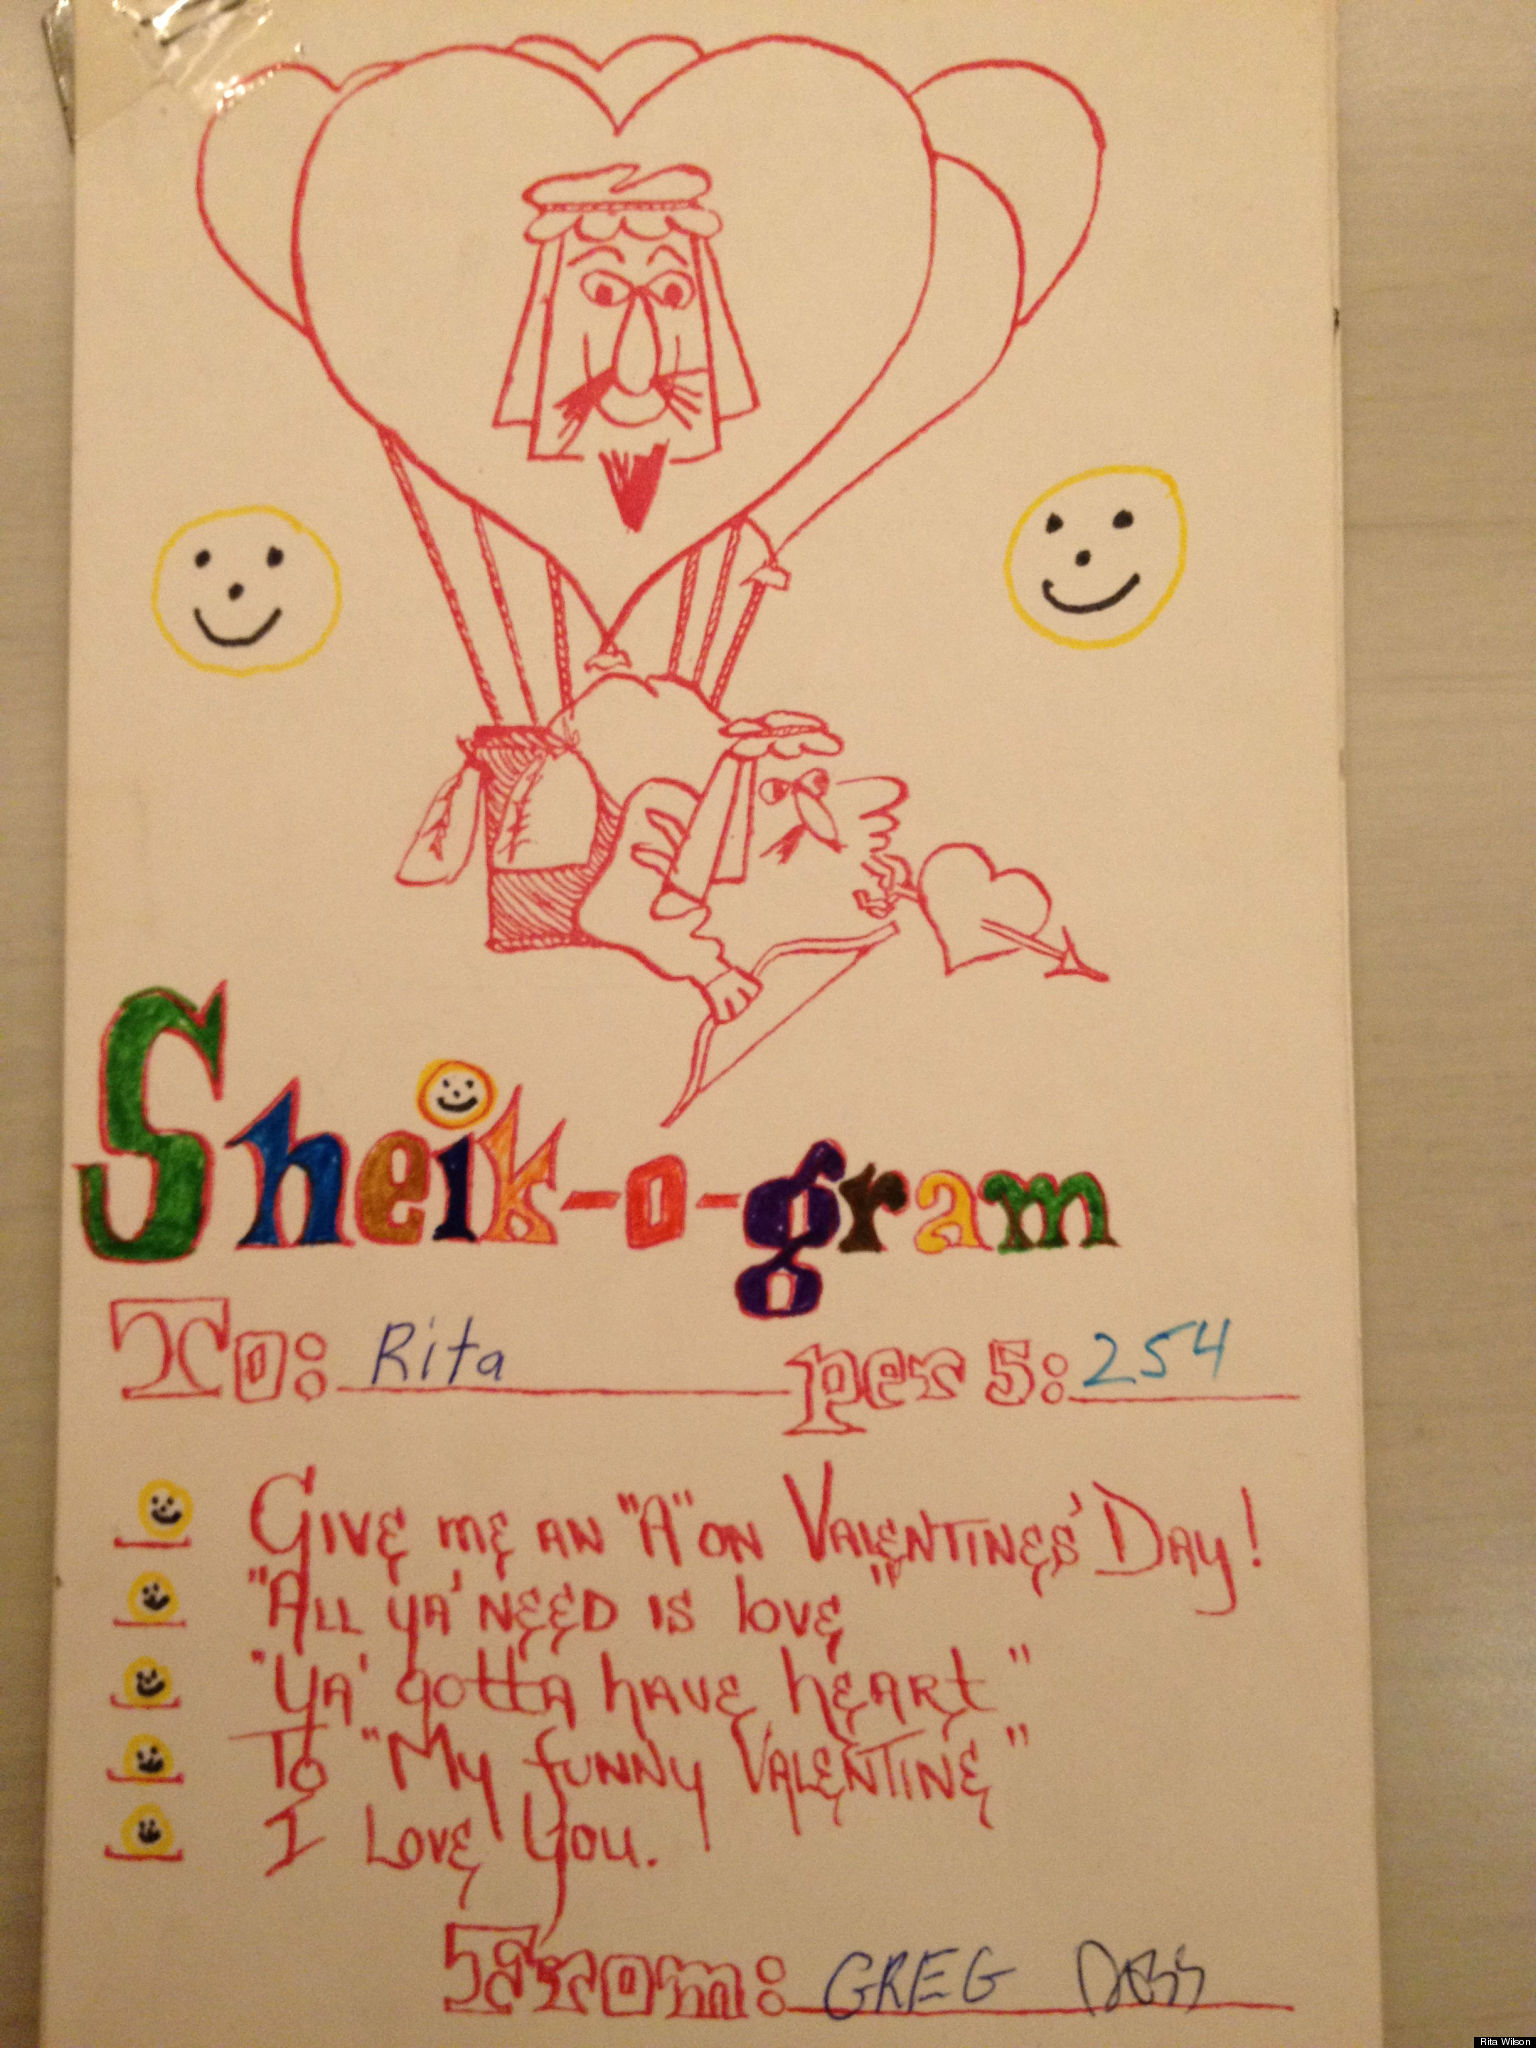 Sheik-o-gram
To: Rita per 5: 254
Give me an "A" on Valentines' Day!
"All ya' need is love"
"Ya' gotta have heart"
To "My funny Valentine"
I Love You.
From: GREG
Rita Wilson